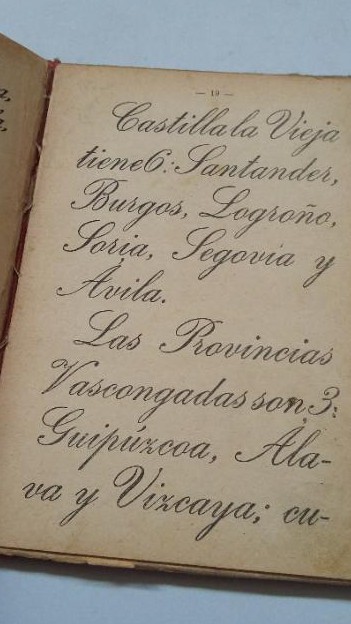 — 19 —
Castilla la Vieja
tiene 6: Santander,
Burgos, Logroño,
Soria, Segovia y
Ávila.
Las Provincias
Vascongadas son 3:
Guipúzcoa, Ála-
va y Vizcaya; cu-